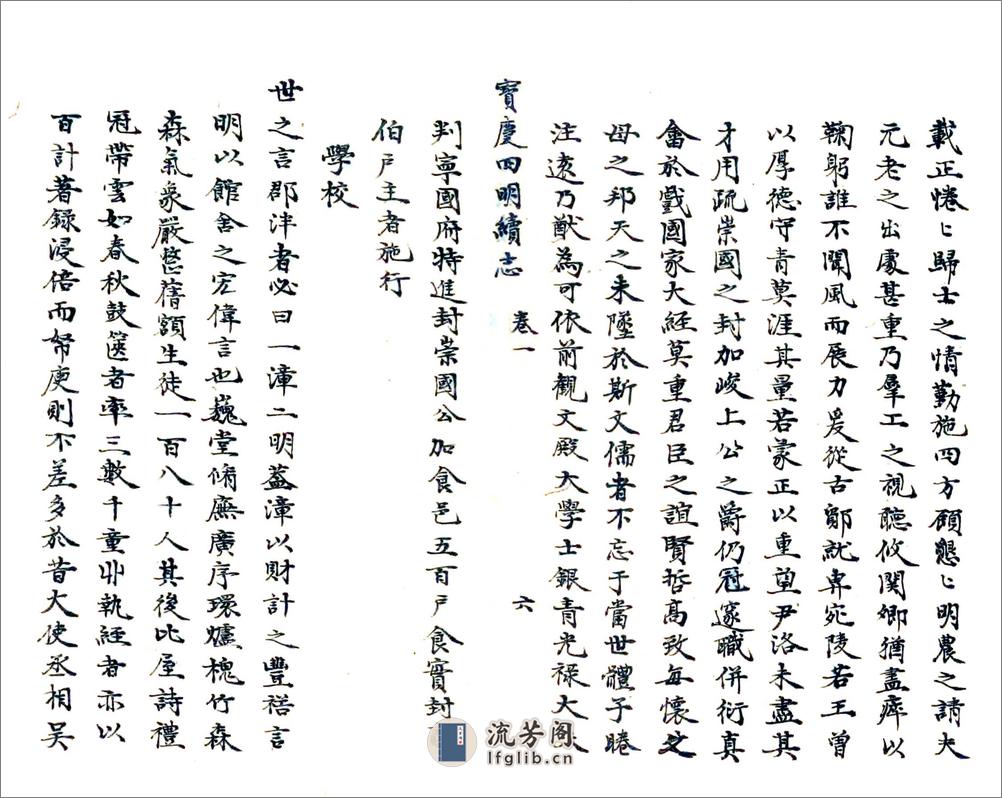 載正惓〻歸士之情勤施四方顧懇〻明農之請夫
元老之出處甚重乃羣工之視聽攸関娜猶盡瘁以
鞠躬誰不聞風而展力爰從古鄮就畀宛陵若王曾
以厚德守青莫涯其量若蒙正以重望尹洛未盡其
才用疏崇國之封加峻上公之爵仍冠邃職併衍真
畬於戲國家大経莫重君臣之誼賢哲髙致每懐父
母之邦天之未墜於斯文儒者不忘于當世體予睠
注遠乃猷為可依前觀文殿大學士銀青光禄大夫
寳慶四明續志 卷一 六
判寧國府特進封崇國公加食邑五百戸食實封
伯戸主者施行
學校
世之言郡泮者必曰一漳二明葢漳以財計之豐裕言
明以館舍之宏偉言也巍堂脩廡廣序環爐槐竹森
森氣象嚴整舊額生徒一百八十人其後比屋詩禮
冠帶雲如春秋鼓篋者率三數千童丱執経者亦以
百計著録浸倍而帑庾則不差多於昔大使丞相吴
流芳阁
lfglib.cn